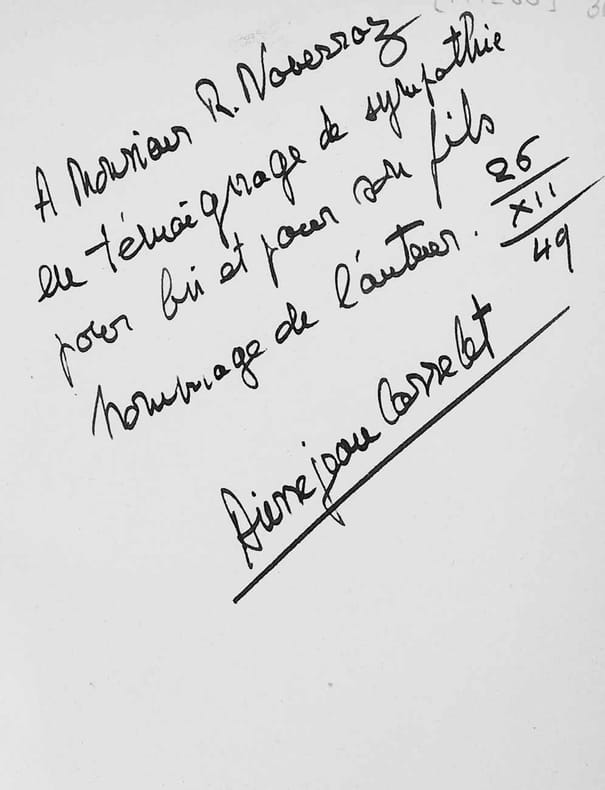 A Monsieur R. Noverraz
en témoignage de sympathie
pour lui et pour son fils
hommage de l'auteur.
26
XII
49
Pierrejean